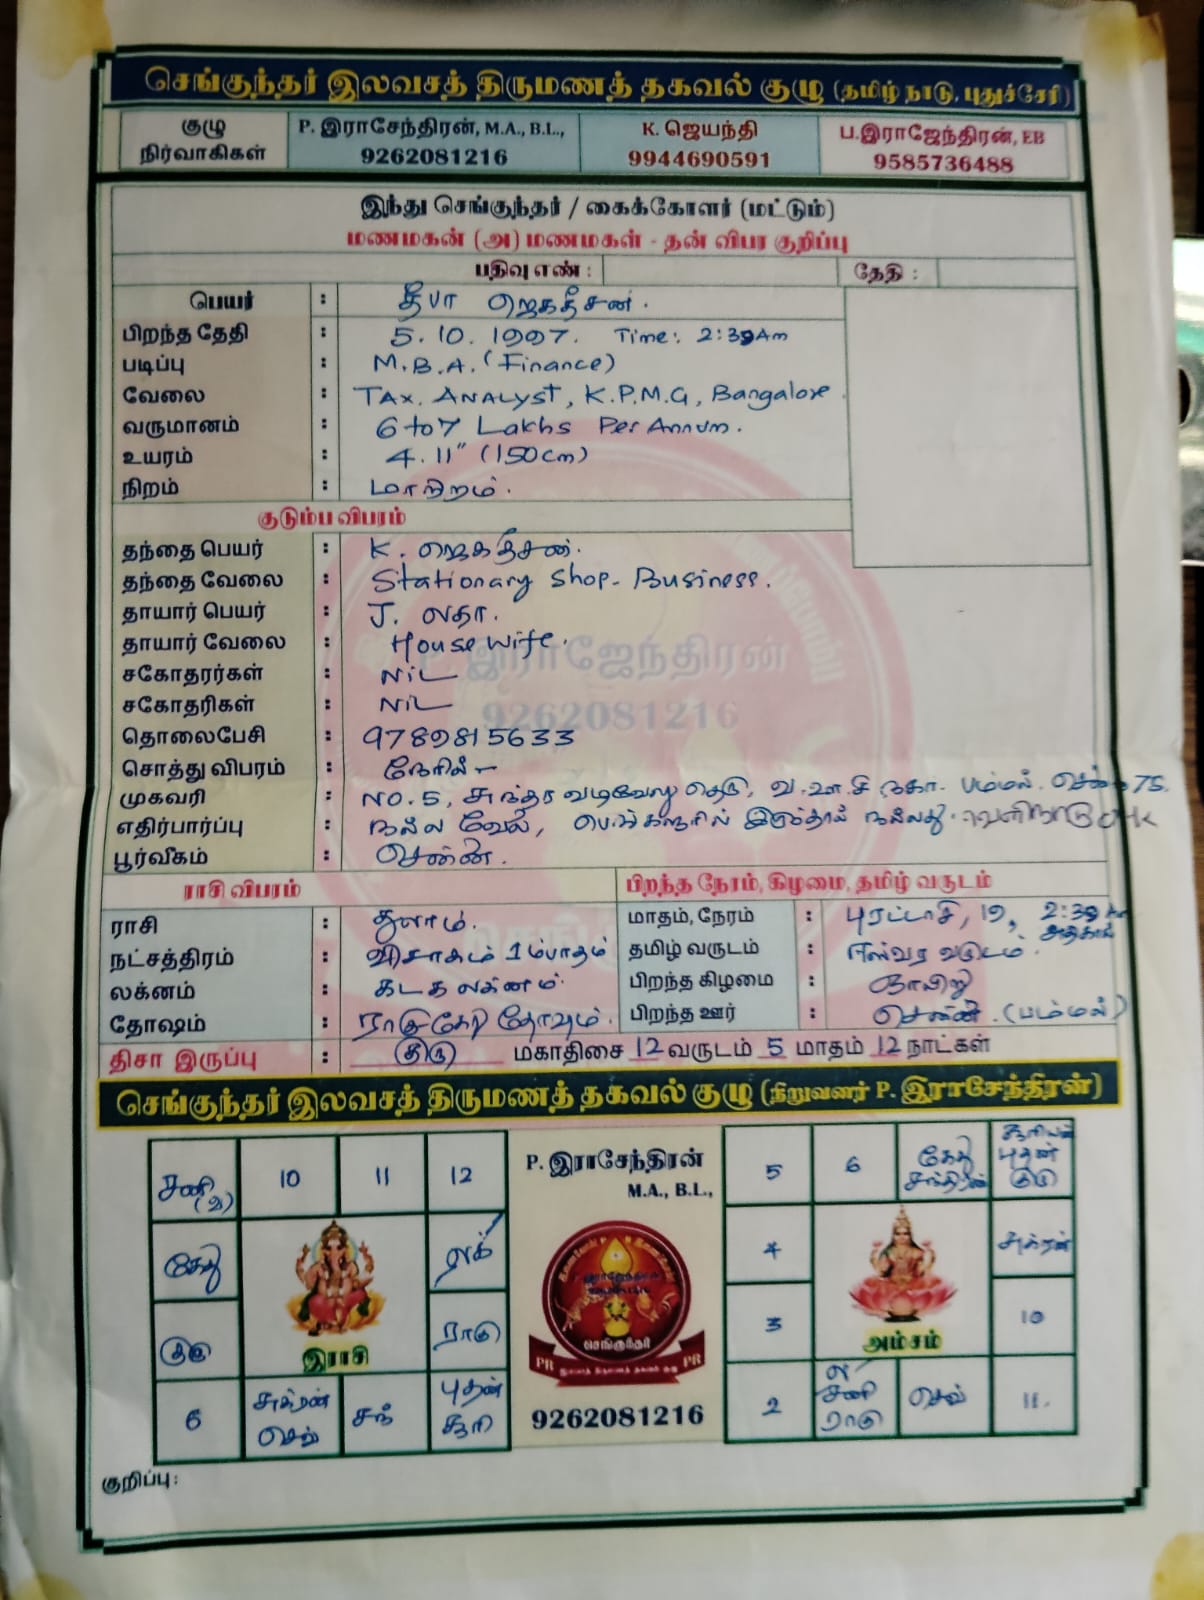 செங்குந்தர் இலவசத் திருமணத் தகவல் குழு (தமிழ் நாடு, புதுச்சேரி)
குழு நிர்வாகிகள்
P. இராசேந்திரன், M.A., B.L., 9262081216
K. ஜெயந்தி 9944690591
ப.இராஜேந்திரன், EB 9585736488
இந்து செங்குந்தர் / கைக்கோளர் (மட்டும்)
மணமகன் (அ) மணமகள் - தன் விபர குறிப்பு
பதிவு எண் : தேதி :
பெயர் : தீபா ஜெகதீசன்.
பிறந்த தேதி : 5. 10. 1997. Time: 2:39 Am
படிப்பு : M.B.A. (Finance)
வேலை : TAX. ANALYST, K.P.M.G, Bangalore.
வருமானம் : 6 to 7 Lakhs Per Annum.
உயரம் : 4. 11" (150 cm)
நிறம் : மாநிறம்.
குடும்ப விபரம்
தந்தை பெயர் : K. ஜெகதீசன்.
தந்தை வேலை : Stationary Shop - Business.
தாயார் பெயர் : J. லதா.
தாயார் வேலை : House wife.
சகோதரர்கள் : NiL
சகோதரிகள் : NiL
தொலைபேசி : 9789815633
சொத்து விபரம் : நேரில் -
முகவரி : NO. 5, சுந்தர வடிவேலு தெரு, வ.ஊ.சி நகர். பம்மல். சென்னை 75.
எதிர்பார்ப்பு : நல்ல வேலை, பெங்களூரில் இருந்தால் நல்லது. வெளிநாடு OK
பூர்வீகம் : சென்னை.
ராசி விபரம்
பிறந்த நேரம், கிழமை, தமிழ் வருடம்
ராசி : துலாம்.
மாதம், நேரம் : புரட்டாசி, 19, 2:39 Am அதிகாலை
நட்சத்திரம் : விசாகம் 1 ம்பாதம்
தமிழ் வருடம் : ஈஸ்வர வருடம்.
லக்னம் : கடக லக்னம்.
பிறந்த கிழமை : ஞாயிறு
தோஷம் : ராகுகேது தோஷம்.
பிறந்த ஊர் : சென்னை. (பம்மல்)
திசா இருப்பு : குரு மகாதிசை 12 வருடம் 5 மாதம் 12 நாட்கள்
செங்குந்தர் இலவசத் திருமணத் தகவல் குழு (நிறுவனர் P. இராசேந்திரன்)
சனி (வ) 10 11 12
கேது லக்
குரு ராகு
இராசி
6 சுக்ரன் செவ் சந் புதன் சூரி
P. இராசேந்திரன்
M.A., B.L.,
செங்குந்தர்
PR PR
9262081216
5 6 கேது சந்திரன் சூரியன் புதன் குரு
4 சுக்ரன்
3 10
அம்சம்
2 ல சனி ராகு செவ் 11.
குறிப்பு:
ப. இராஜேந்திரன்
9262081216